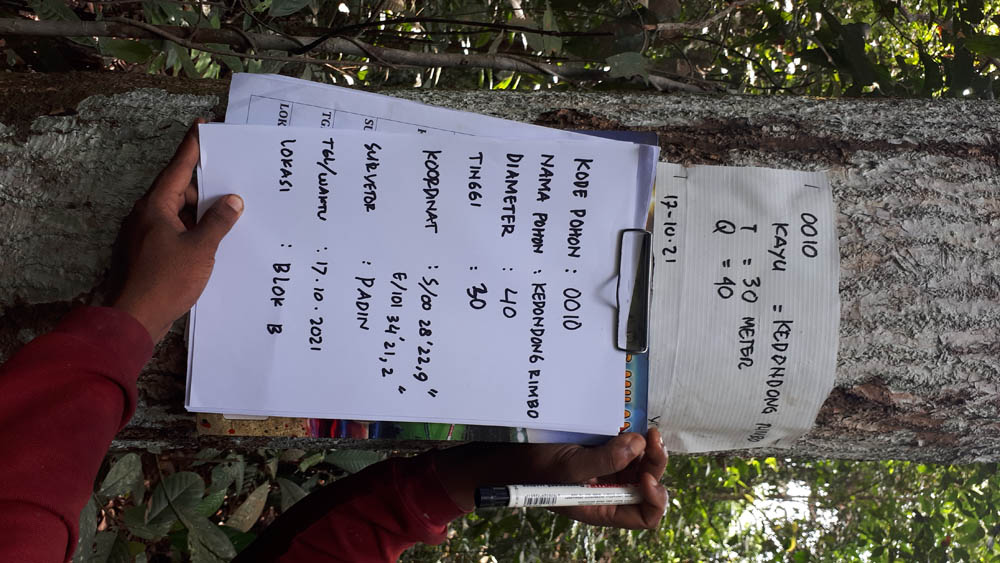 0010
KAYU = KEDONDONG RIMBO
T = 30 METER
Q = 40
17-10-21
KODE POHON : 0010
NAMA POHON : KEDONDONG RIMBO
DIAMETER : 40
TINGGI : 30
KOORDINAT : S/00 28'22,9"
E/101 34'21,2"
SURVEYOR : PADIN
TGL/WAKTU : 17.10.2021
LOKASI : BLOK B
SU
TG
LOK